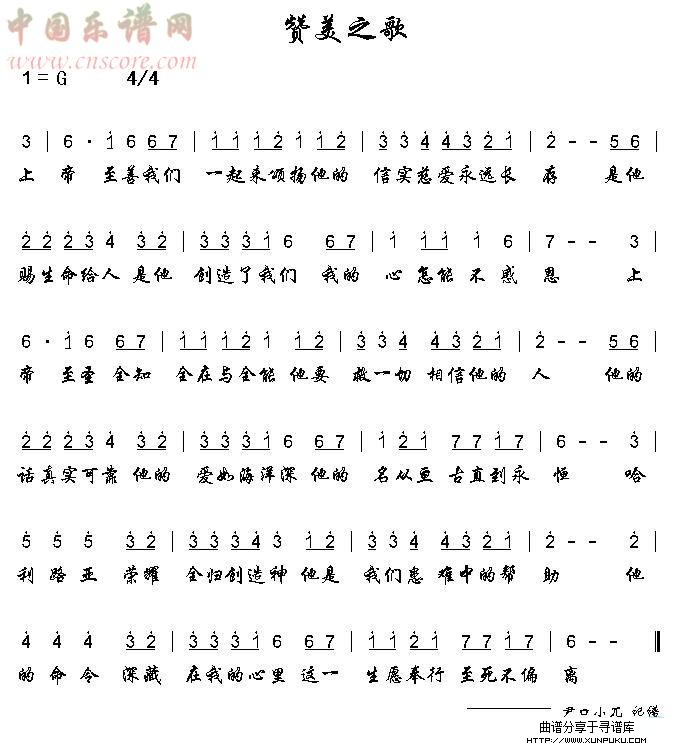 中国乐谱网
www.cnscore.com
赞美之歌
1=G 4/4
3 | 6 · 1 6 6 7 | 1 1 1 2 1 1 2 | 3 3 4 4 3 2 1 | 2 - - 5 6 |
上帝 至善我们 一起来颂扬他的 信实慈爱永远长 存 是他
2 2 2 3 4 3 2 | 3 3 3 1 6 6 7 | 1 1 1 1 6 | 7 - - 3 |
赐生命给人 是他 创造了我们 我的 心 怎能 不 感 恩 上
6 · 1 6 6 7 | 1 1 1 2 1 1 2 | 3 3 4 4 3 2 1 | 2 - - 5 6 |
帝 至圣 全知 全在与全能 他要 救一切 相信他的 人 他的
2 2 2 3 4 3 2 | 3 3 3 1 6 6 7 | 1 2 1 7 7 1 7 | 6 - - 3 |
话真实可靠 他的 爱如海洋深 他的 名从亘 古直到永 恒 哈
5 5 5 3 2 | 3 3 3 4 3 1 2 | 3 3 4 4 3 2 1 | 2 - - 2 |
利路亚 荣耀 全归创造神 他是 我们患 难中的帮 助 他
4 4 4 3 2 | 3 3 3 1 6 6 7 | 1 1 2 1 7 7 1 7 | 6 - - ‖
的命令 深藏 在我的心里 这一 生愿奉行 至死不偏 离
尹口小兀 记谱
曲谱分享于寻谱库
HTTP://WWW.XUNPUKU.COM